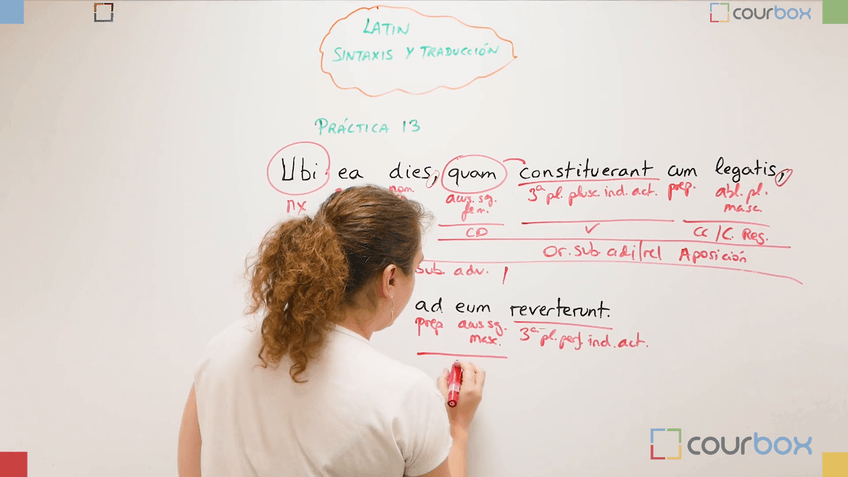 courbox
LATIN
SINTAXIS Y TRADUCCIÓN
PRÁCTICA 13
Ubi ea dies, quam constituerant cum legatis,
nx nom. acus. sg. fem. 3ª pl. plusc. ind. act. prep. abl. pl. masc.
CD V CC/C. Reg.
Or. sub. adj/rel Aposición
sub. adv.
ad eum reverterunt.
prep acus sg. masc. 3ª pl. perf. ind. act.
courbox